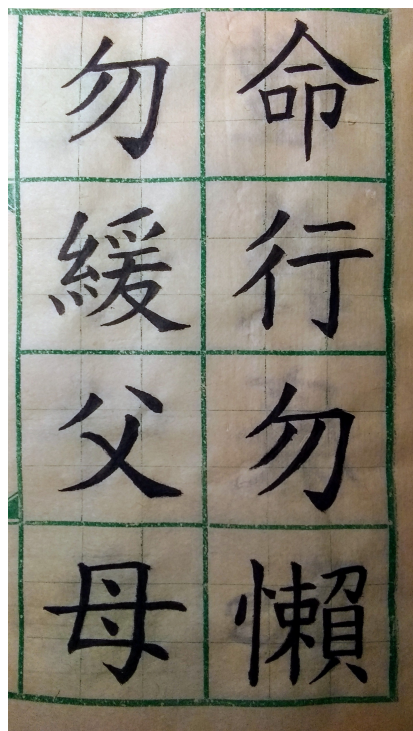 命行勿懶
勿緩父母